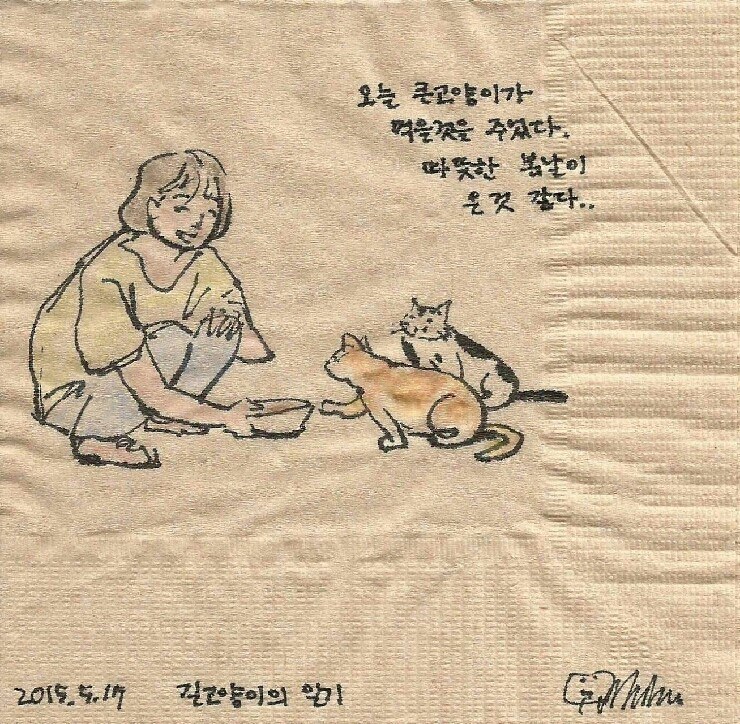 오늘 큰고양이가
먹을것을 주었다.
따뜻한 봄날이
온것 같다..
2015.5.17 길고양이의 일기